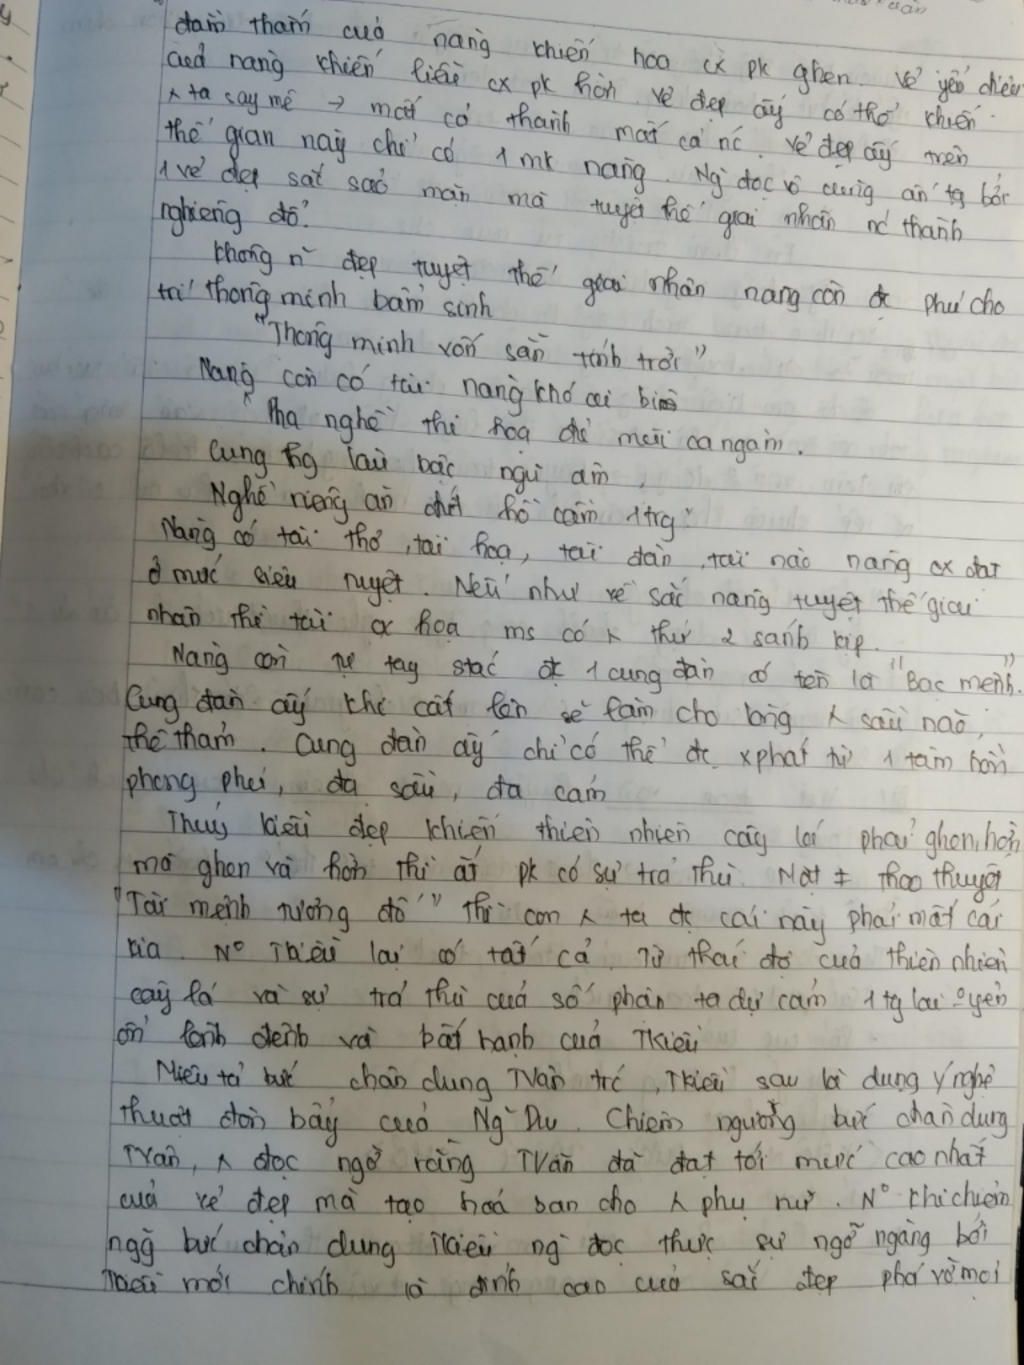 đằm thắm của nàng khiến hoa cx pk ghen. Vẻ yêu kiều
của nàng khiến liễu cx pk hờn. Vẻ đẹp ấy có thể khiến
ta say mê → mất cả thành mất cả nc. Vẻ đẹp ấy trên
thế gian này chỉ có 1 mk nàng. Ng đọc vô cùng ấn tg bởi
1 vẻ đẹp sắc sảo mặn mà tuyệt thế giai nhân nc thành
nghiêng đổ.
Không n~ đẹp tuyệt thế giai nhân nàng còn đc phú cho
trí thông minh bẩm sinh
"Thông minh vốn sẵn tính trời"
Nàng còn có tài năng khó ai bì
"Pha nghề thi họa đủ mùi ca ngâm.
Cung thg lầu bậc ngũ âm,
Nghề riêng ăn đứt hồ cầm 1 trg"
Nàng có tài thơ, tài họa, tài đàn, tài nào nàng cx đạt
ở mức siêu tuyệt. Nếu như về sắc nàng tuyệt thế giai
nhân thì tài cx họa ms có thứ 2 sánh kịp.
Nàng còn tự tay stác đc 1 cung đàn có tên là "Bạc mệnh".
Cung đàn ấy khi cất lên sẽ làm cho lòng sầu não,
thê thảm. Cung đàn ấy chỉ có thể đc xphát từ 1 tâm hồn
phong phú, đa sầu, đa cảm
Thúy Kiều đẹp khiến thiên nhiên cây lá phải ghen, hờn
mà ghen và hờn thì ắt pk có sự trả thù. Mặt ≠ theo thuyết
"Tài mệnh tương đố" thì con ta đc cái này phải mất cái
kia. N° TKiều lại có tất cả. Từ thái độ của thiên nhiên
cây lá và sự trả thù của số phận ta dự cảm 1 tg lai °yên
ổn lênh đênh và bất hạnh của TKiều
Miêu tả bức chân dung TVân trc, TKiều sau là dụng ý nghệ
thuật đòn bẩy của Ng~ Du. Chiêm ngưỡng bức chân dung
TVân, đọc ngỡ rằng TVân đã đạt tới mức cao nhất
của vẻ đẹp mà tạo hoá ban cho phụ nữ. N° khi chiêm
ngg~ bức chân dung TKiều ng đọc thực sự ngỡ ngàng bởi
TKiều mới chính là đỉnh cao của sắc đẹp phá vỡ mọi